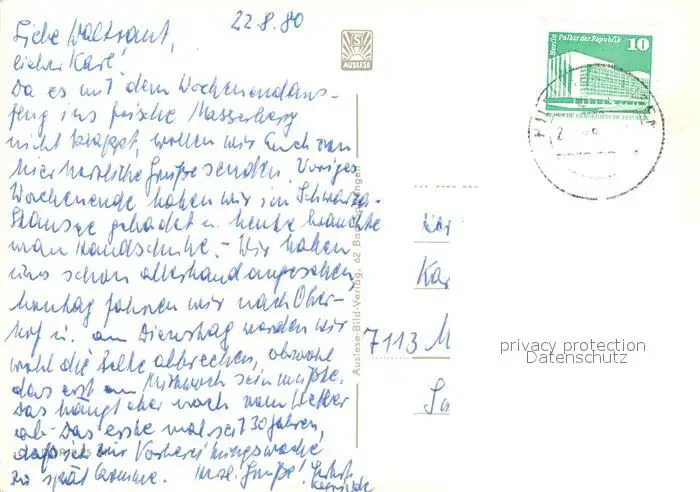 22.8.80
Liebe Waltraut,
lieber Karl!
Da es mit dem Wochenendaus-
flug ins frische Masserberg
nicht klappt, wollen wir Euch von
hier herzliche Grüße senden. Voriges
Wochenende haben wir im Schwarza-
Stausee gebadet u. heute brauchte
man Handschuhe. – Wir haben
uns schon allerhand angesehen,
Montag fahren wir nach Ober-
hof u. am Dienstag werden wir
wohl die Zelte abbrechen, obwohl
das erst am Mittwoch sein müßte.
Das hängt aber noch vom Wetter
ab. Das erste mal seit 30 Jahren,
daß ich zur Vorbereitungswoche
zu spät komme. Grüße!
S
AUSLESE
Auslese-Bild-Verlag, 62 Ba
Berlin Palast der Republik
10
DEUTSCHE DEMOKRATISCHE REPUBLIK
Kar
7113 M
privacy protection
Datenschutz